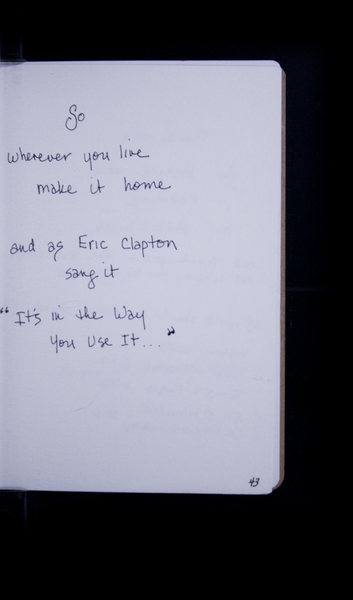 So
wherever you live
make it home
and as Eric Clapton
sang it
"It's in the Way
You Use It..."
43